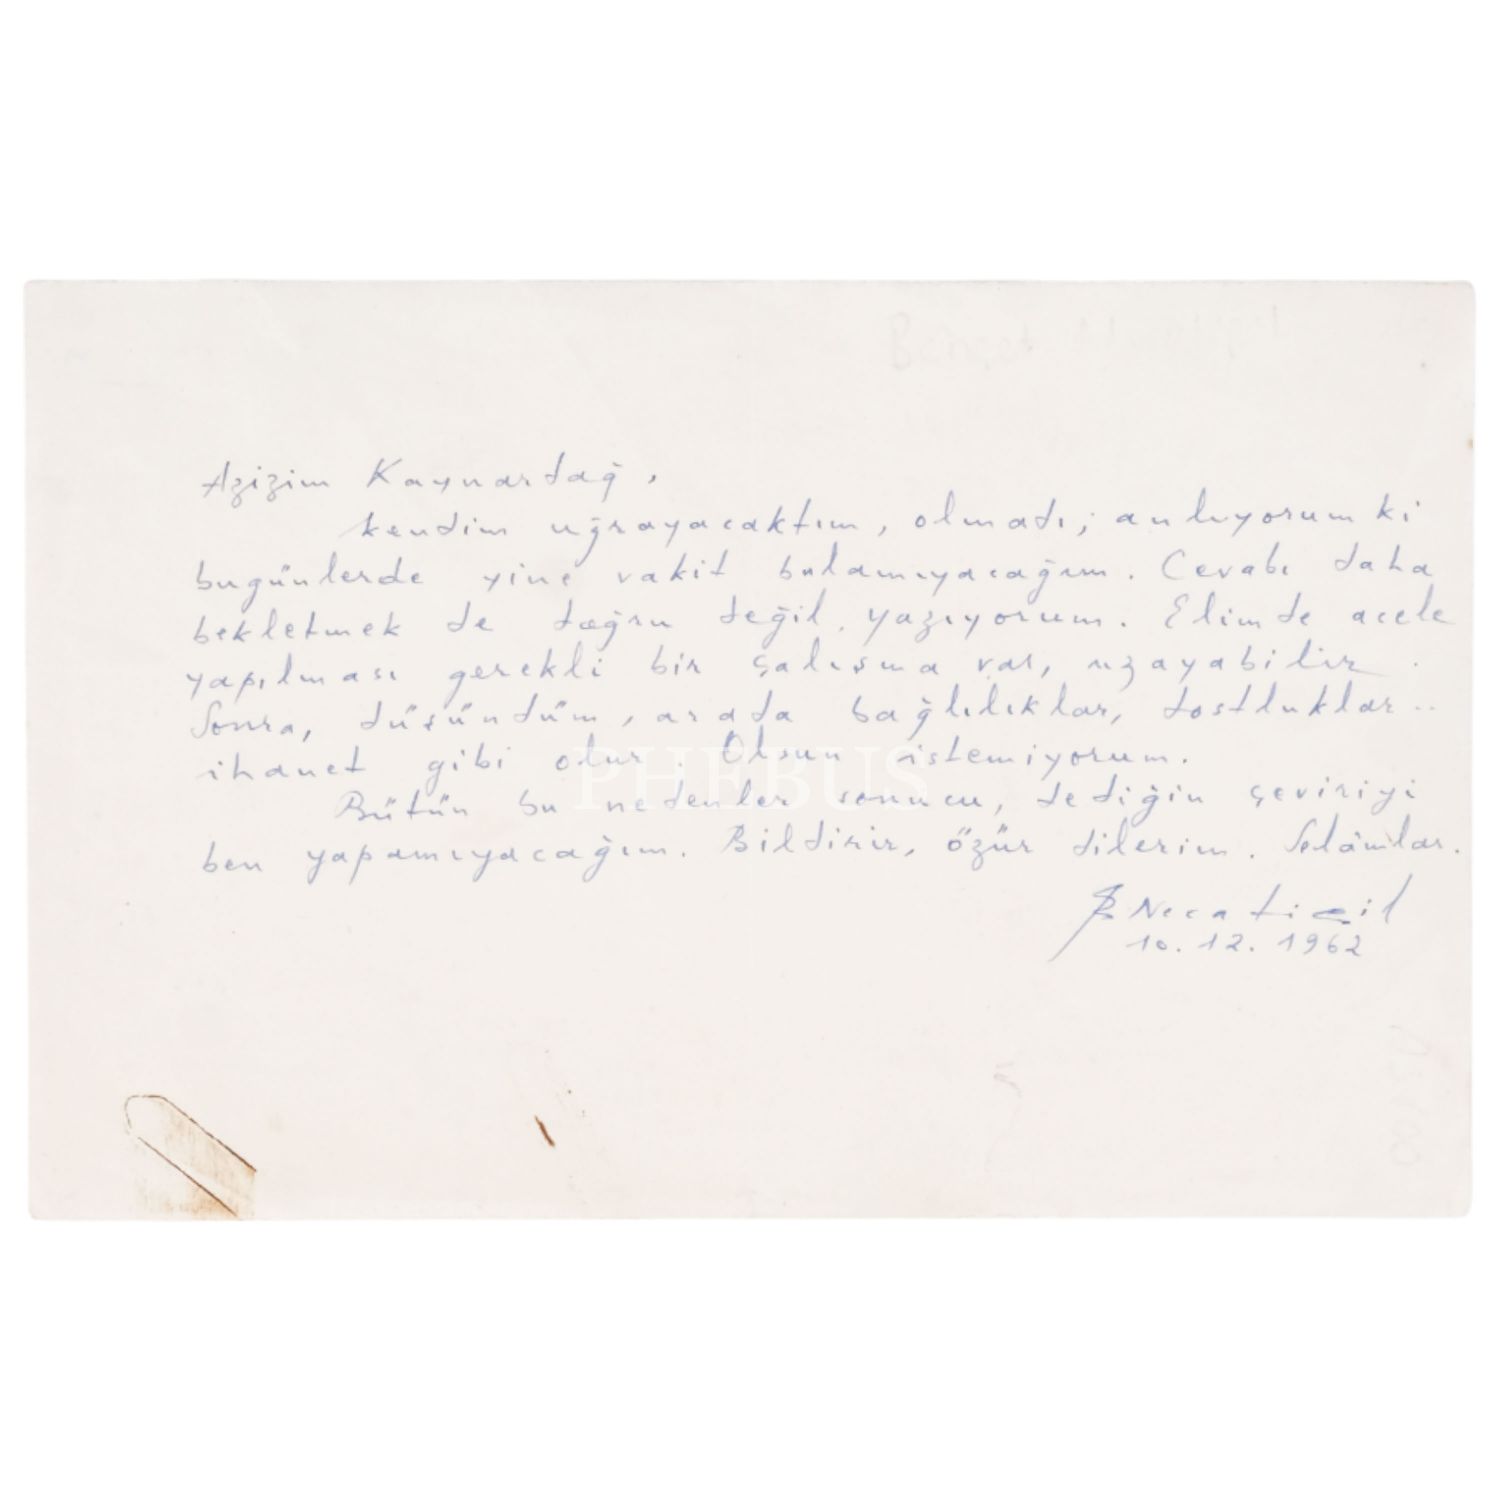 Behçet Necatigil
Azizim Kaynardağ,
kendim uğrayacaktım, olmadı; anlıyorum ki
bugünlerde yine vakit bulamıyacağım. Cevabı daha
bekletmek de doğru değil, yazıyorum. Elimde acele
yapılması gerekli bir çalışma var, uzayabilir.
Sonra, düşündüm, arada bağlılıklar, dostluklar..
ihanet gibi olur. Olsun istemiyorum.
PHEBUS
Bütün bu nedenler sonucu, dediğin çeviriyi
ben yapamıyacağım. Bildirir, özür dilerim. Selâmlar.
B Necatigil
10.12.1962